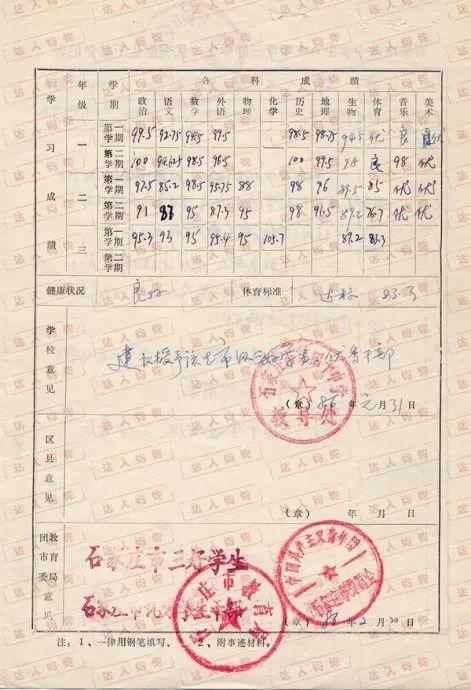 各科成绩
学习成绩 年级 学期 政治 语文 数学 外语 物理 化学 历史 地理 生物 体育 音乐 美术
一 第一学期 99.5 92.75 99.5 98.5 98.75 94.5 优 良
第二学期 100 94.625 98.5 96.5 100 99.5 98 良 98 优
二 第一学期 97.5 85.2 98.5 95.75 88 98 96 89.5 85 优 优
第二学期 91 87 95 87.3 95 98 91.5 89.2 76.7 优 优
三 第一学期 95.3 93 95 95.4 95 105.7 87.2 83.3
第二学期
健康状况 良好 体育标准 达标 83.3
学校意见
建议授予该生市级三好学生 优秀干部
石家庄
教导处
(章) 86年元月31日
区县意见
(章) 年 月 日
团市委 教育局 意见
石家庄市三好学生
石家庄市教育局
中国共产主义青年团
石家庄市委员会
(章) 2月20日
注：1、一律用钢笔填写。 2、附事迹材料。
达人钧兜